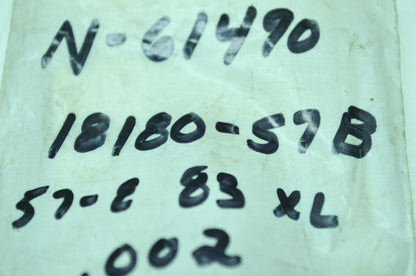 N-61490
18180-57B
57-E 83 XL
.002